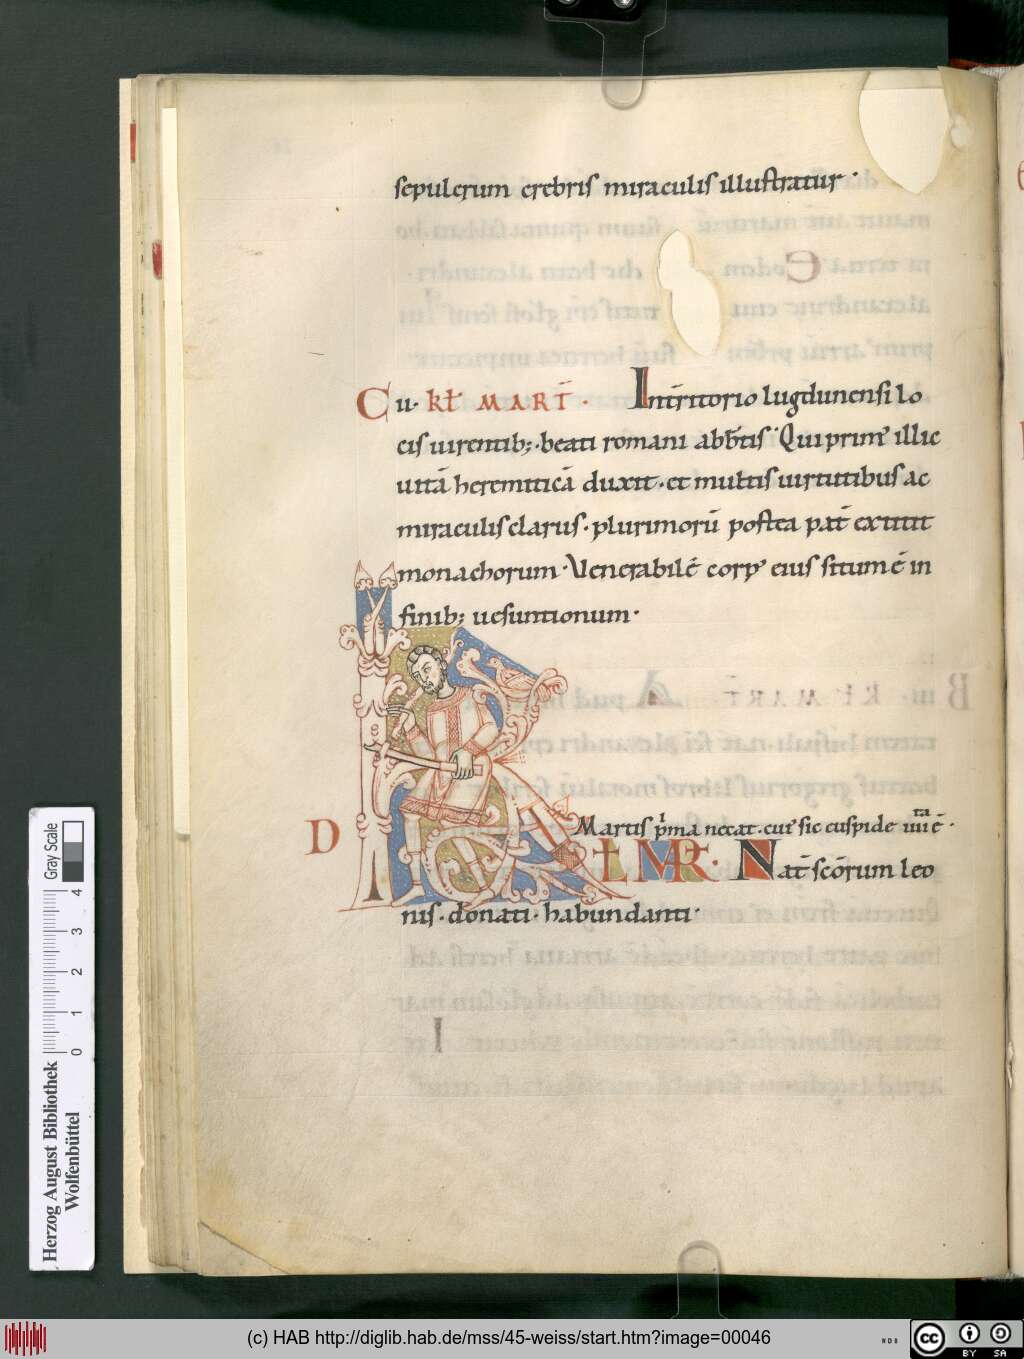 sepulcrum crebris miraculis illustratur.
C u. kł MART̄. In t̄ritorio lugdunensi lo
cis uirentib; beati romani abb̄tis. Qui prim' illic
uitā heremiticā duxit. et multis uirtutibus ac
miraculis clarus. plurimorū postea pat̄ extitit
monachorum. Venerabilē corp' eius situm ē in
finib; uesuntionum.
D Martis p̄ma necat. cui' sic cuspide iiii ta ē.
K A Ł MR̄. Nat̄ scōrum leo
nis. donati. habundanti.
Herzog August Bibliothek
Wolfenbüttel
0 1 2 3 4
Gray Scale
(c) HAB http://diglib.hab.de/mss/45-weiss/start.htm?image=00046
cc BY SA